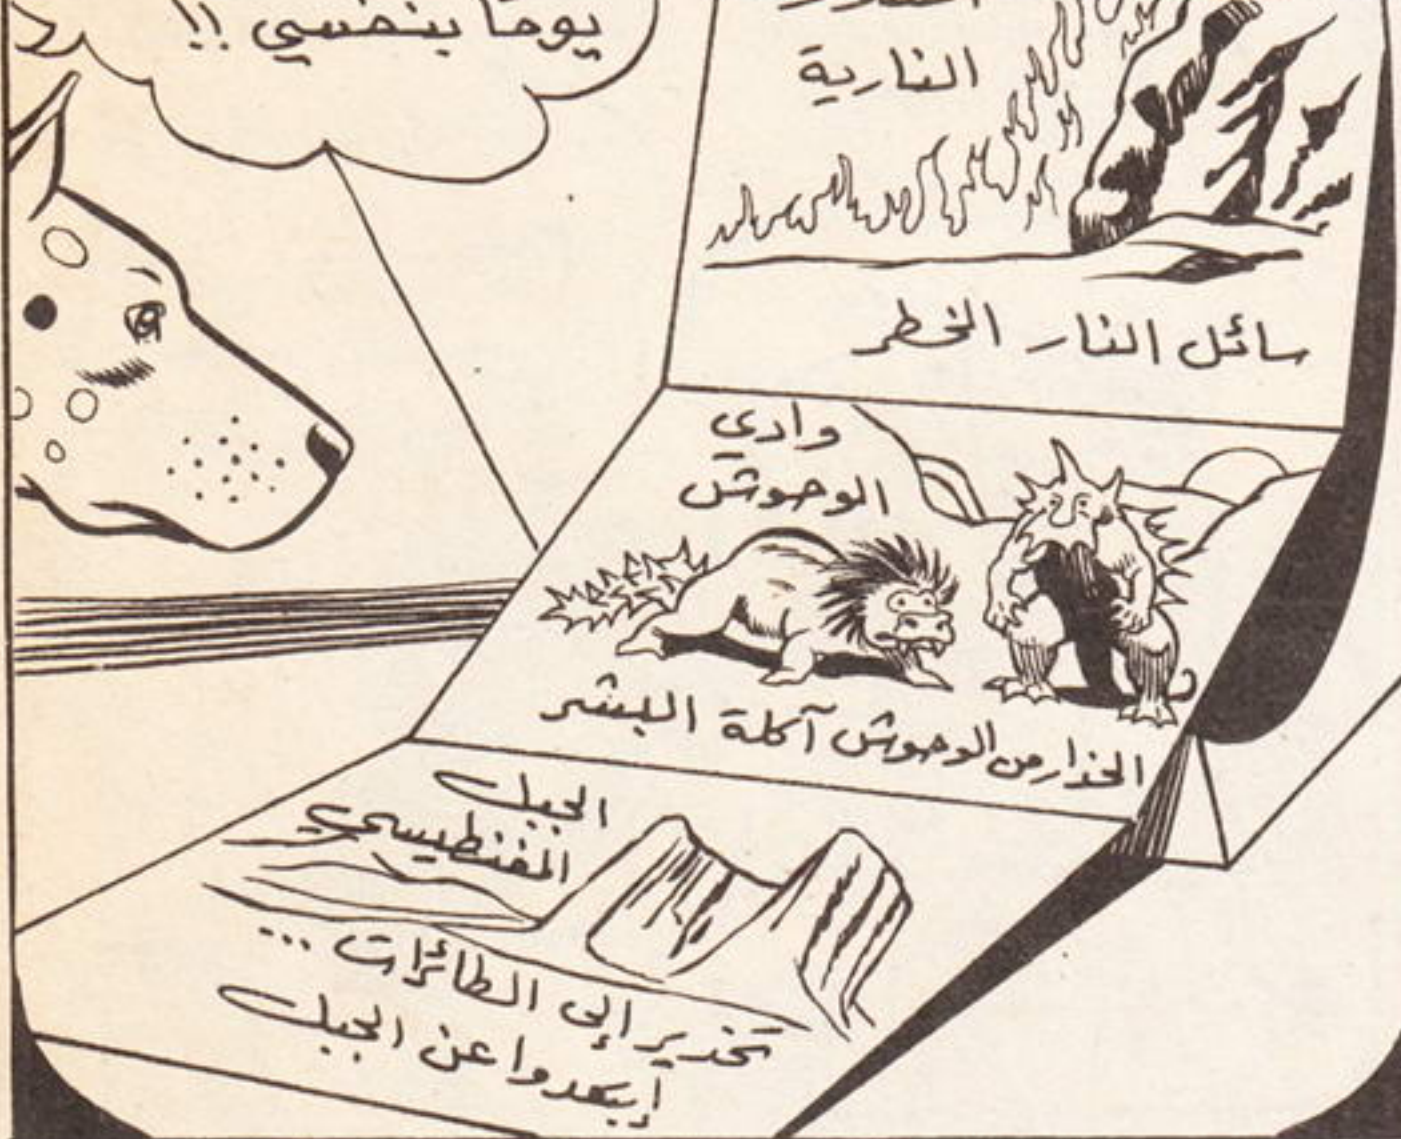 يوماً بنفسي !!
النارية
سائل النار الخطر
وادي
الوحوش
الحذار من الوحوش آكلة البشر
الجبل
المغنطيسي
تحذير إلى الطائرات ...
إبتعدوا عن الجبل